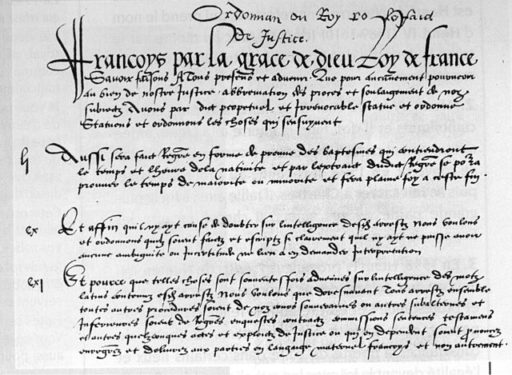 Ordonnan du Roy le faict
De Justice.
Francoys par la grace de dieu Roy de france
Savoir faisons A Tous presens et advenir Que pour aucunement pourveoir
au bien de nostre Justice . abbreviation des proces et soulaigement de noz
subiectz Avons par edit perpetuel et Irrevocable statue et ordonne
Statuons et ordonnons les choses qui sensuyvent
lj Aussi sera faict Regre en forme de preuve des baptesmes qui contiendront
le temps et lheure de la nativite et par lextraict dudict Regre se pora
prouver le temps de maiorite ou minorite et fera plaine foy a ceste fin.
cx Et affin quil ny ayt cause de doubter sur lintelligence desd arrestz Nous voulons
et ordonnons quilz soient faictz et escriptz si clairement quil ny ayt ne puisse avoir
aucune ambiguite ou Incertitude ne lieu a en demander Interpretation
cxi Et pource que telles choses sont souventesfois advenues sur lintelligence des motz
latins contenuz esd arrestz Nous voulons que doresnavant Tous arrestz ensemble
toutes autres procedures soient de noz cours souveraines ou autres subalternes et
Inferieures soient de Regres enquestes contractz commissions sentences testamens
et autres quelzconques actes et exploictz de Justice ou qui en dependent soient prononcez
enregrez et delivrez aux parties en langage maternel francoys et non autrement.